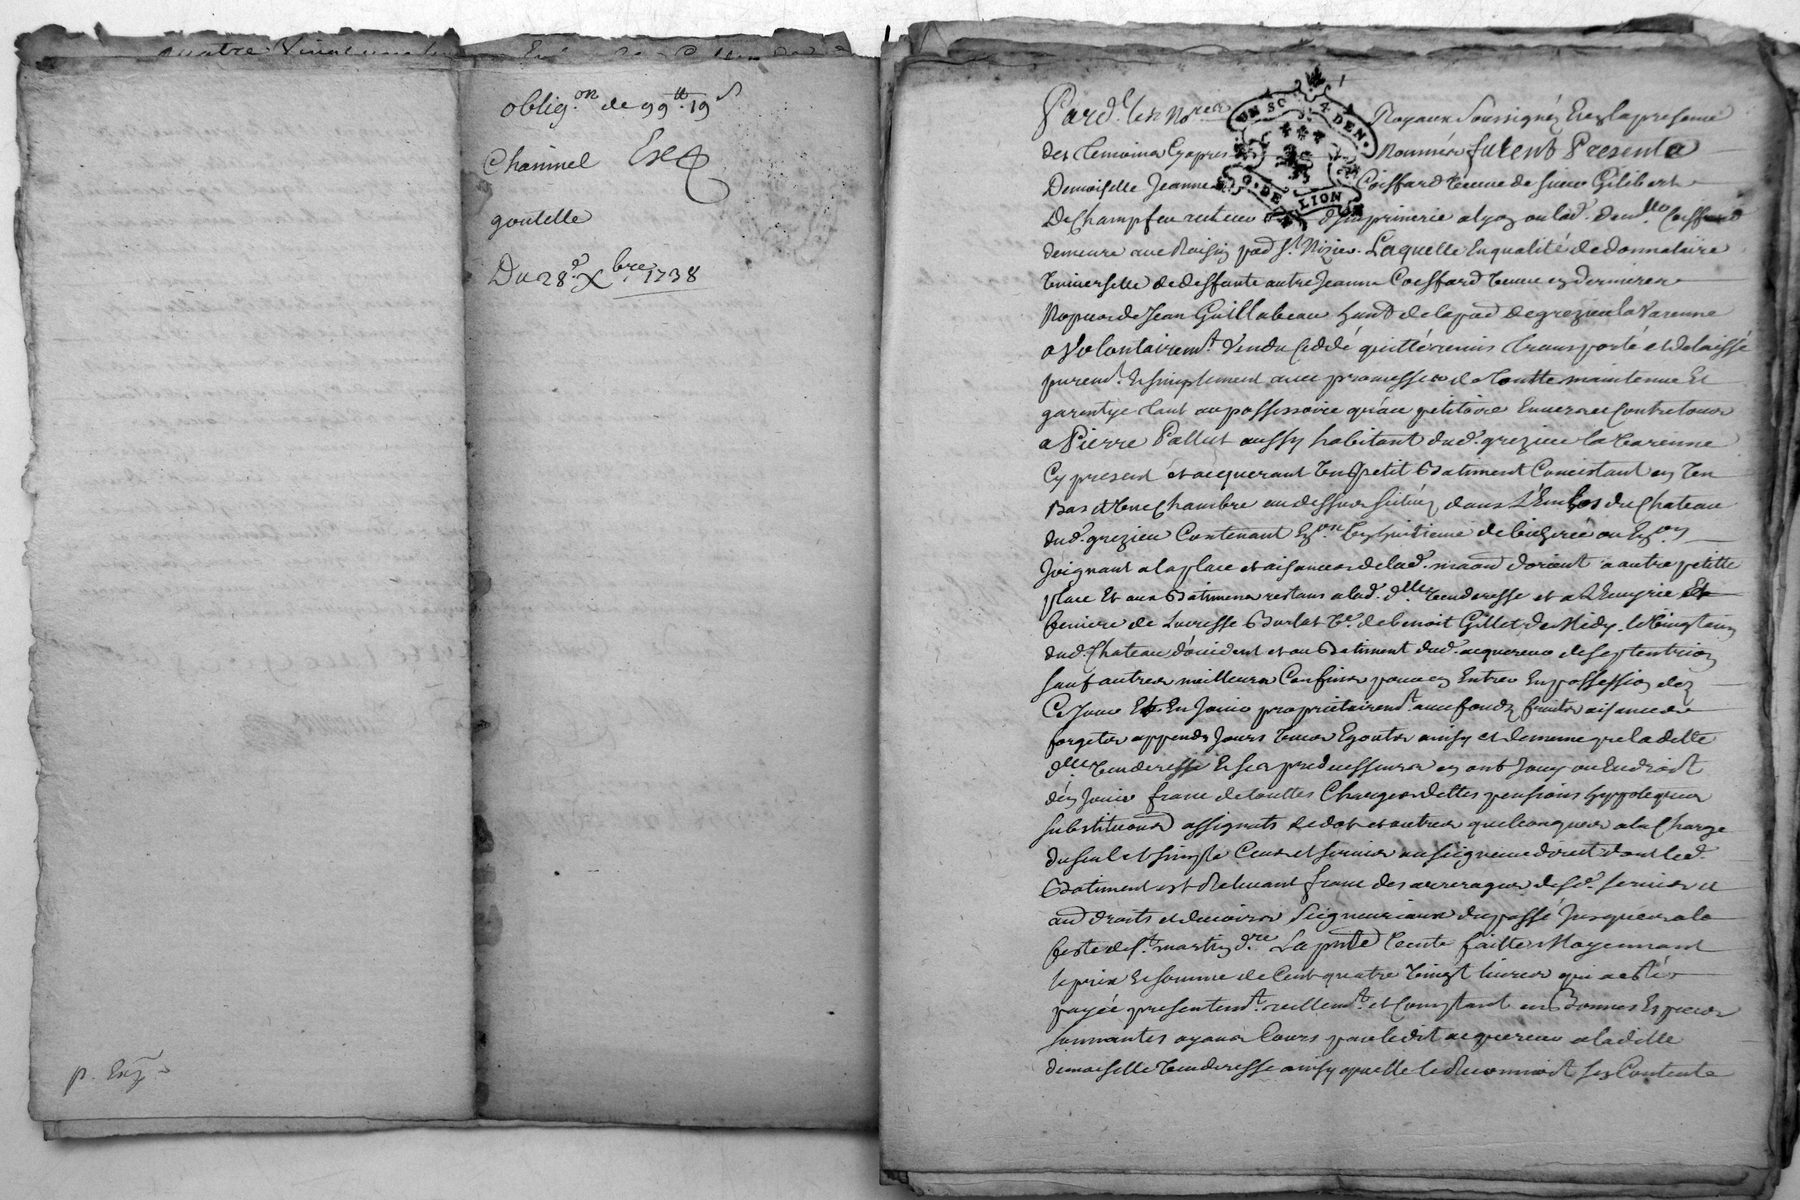 oblig.on de 99tt 19s
Charinel Exp
goutelle
Du 28e Xbre 1738
p. Exp
Pard.t les No.res Royaux soussignéz Et en la presence
UN SOL 4 DEN.
G. DE LION
des temoins Cy apres Nommés fut en personne Presente
Demoiselle Jeanne Coiffard veuve de sieur Gilibert
De Champfeu recteur d'imprimerie a lyon ou lad. dem.lle Coiffard
demeure rue Raisin par. St. Nizier. Laquelle En qualité de donnataire
universelle de deffunte autre Jeanne Coiffard veuve en dernieres
Nopces de Jean Guillabeau hant de la par. de grezieu la Varenne
a Volontairemt. Vendu Ceddé quitté remis transporté et delaissé
puremt. Et simplement avec promesses de toutte maintenue Et
garentye tant au possessoire qu'au petitoire Envers et Contre tous
a Pierre Pallut aussy habitant dud. grezieu la varenne
Cy present et acquerant Un petit Batiment Concistant en Un
Bas et Une Chambre au dessus scituéz dans L'Enclos du Chateau
dud. grezieu Contenant En.on Un huitieme de bicherée ou En.on
Joignant a la place et aisances de lad. maison d'orient a autre petitte
place Et aux Batimens restans a lad. dlle. Venderesse et a l'Ecuyrie Et
feniere de Lucresse Burlat Ve. de benoit Gillet de Midy, le Vingtain
dud. Chateau d'occident et au Batiment dud. acquereur de septentrion
sauf autres meilleurs Confins pour en Entrer En possession dez
Ce Jour Et En Jouir proprietairemt. avec fondz fruits aisances
forgets appends Jours Vues Egouts ainsy et de meme que laditte
dlle. Venderesse Et ses predecesseurs en ont Jouy ou eu droit
d'en Jouir franc de touttes Charges dettes pensions hyppoteques
substitutions assignats de dot et autres quelconques a la Charge
du seul et simple Cens et servis au seigneur direct dont led.
Batiment est Relevant franc des arrerages de sd. servis et
aud droits et devoirs Seigneuriaux du passé Jusques a la
feste de St. martin dre. La pnte Vente faitte Moyennant
le prix Et somme de Cent quatre Vingt livres qui a esté
payée presentemt. reellemt. et Comptant en Bonnes Especes
sonnantes ayans Cours par ledit acquereur a laditte
demoiselle Venderesse ainsy qu'elle le Reconnoit s'en Contente